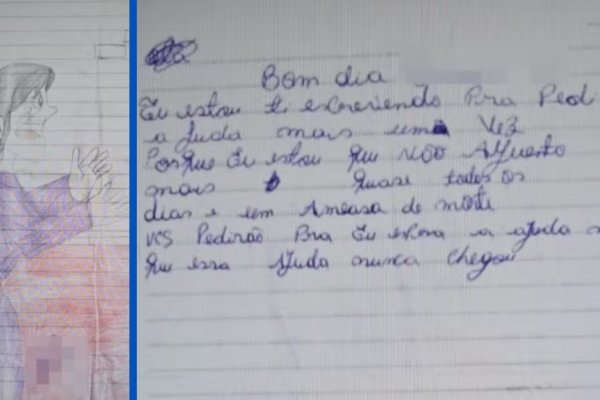 Bom dia
Eu estou ti escrevendo Pra Pedi
a Juda mais uma Vez
Porque Eu estou que NÃO Aguento
mais quase todos os
dias e um Ameasa de morte
vcs Pedirão Pra Eu espera a ajuda
que essa Ajuda nunca chegou